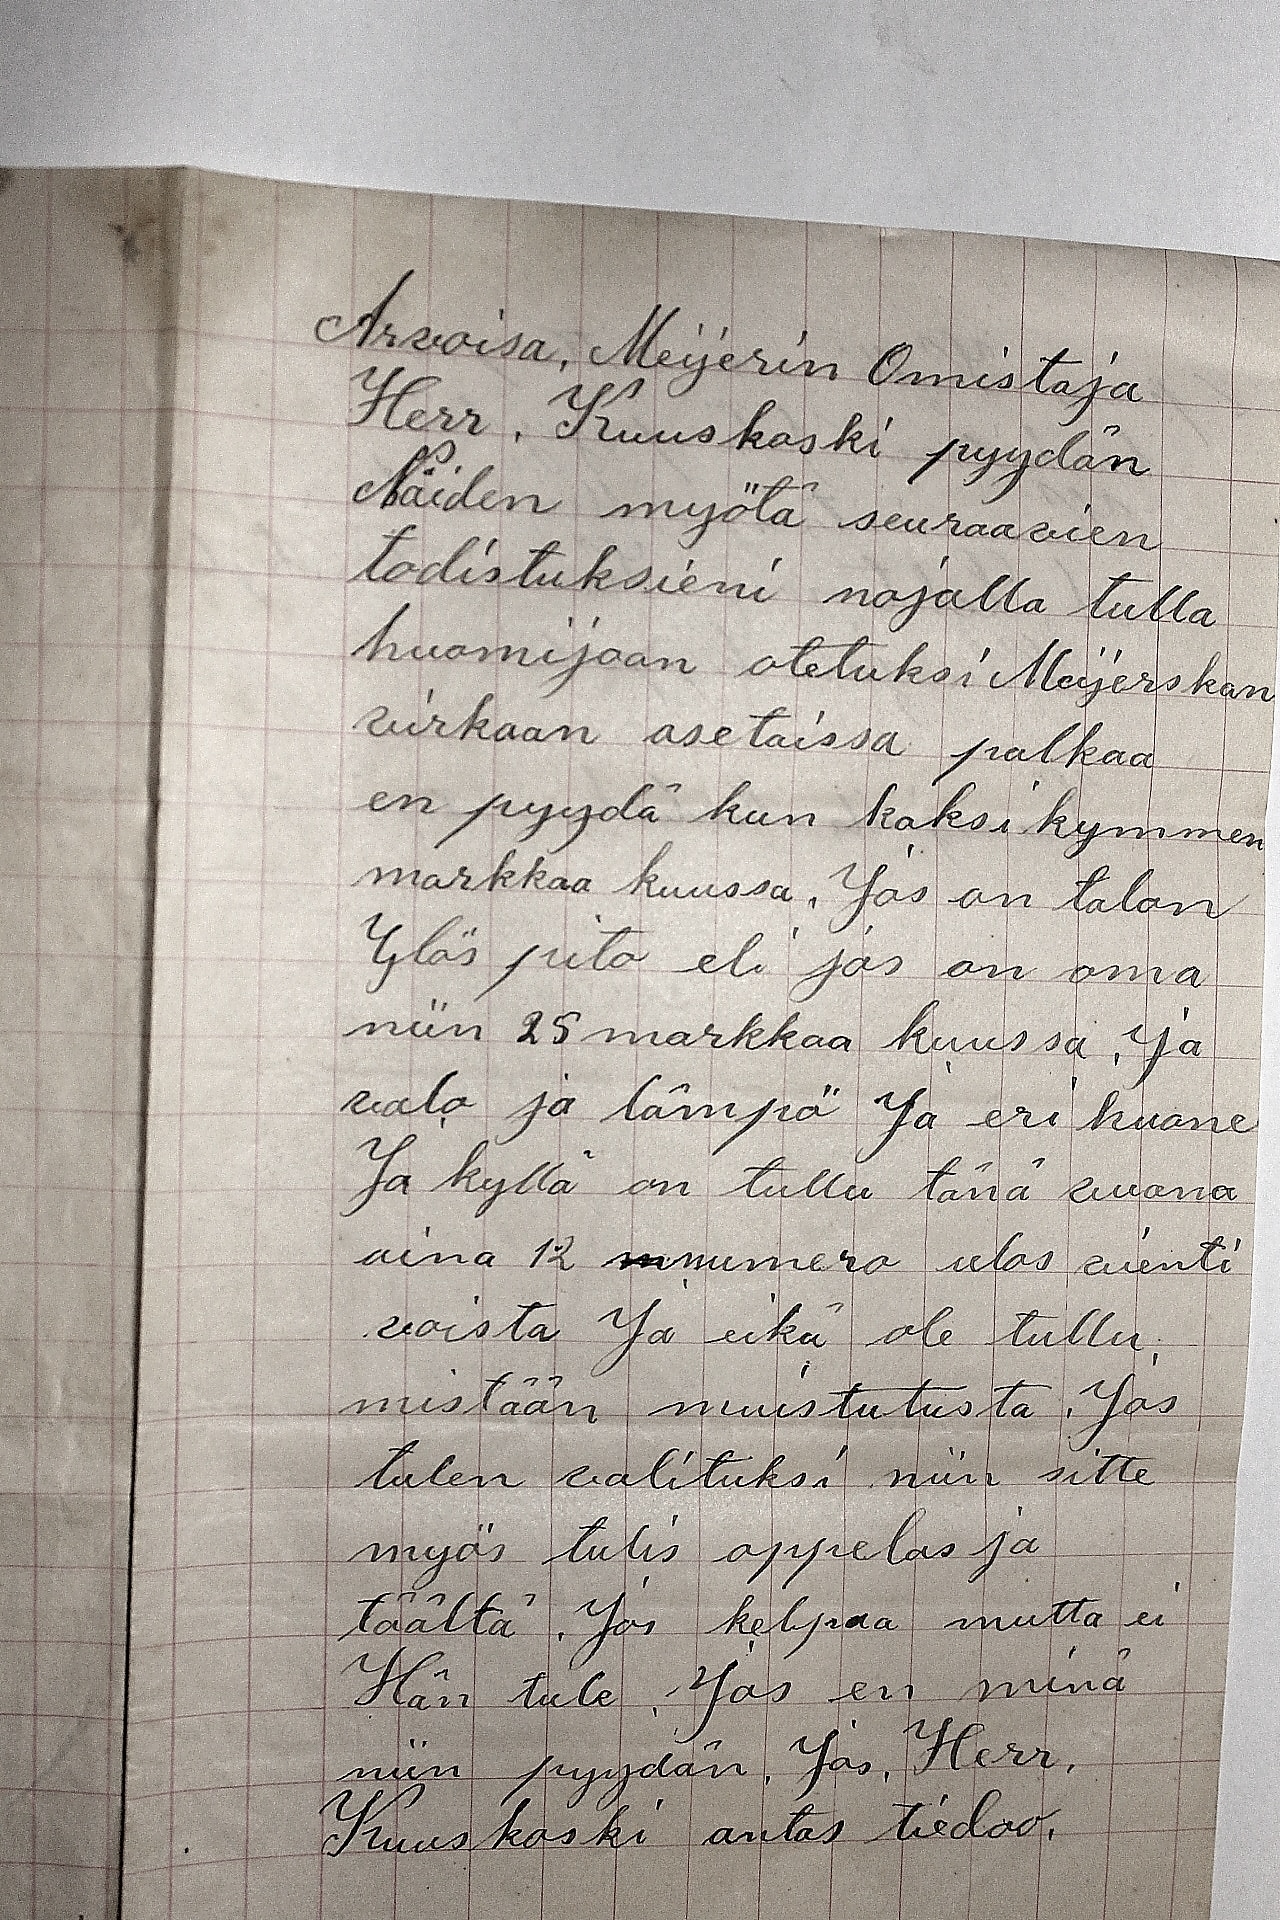 Arvoisa, Meijerin Omistaja
Herr, Kuuskoski pyydän
Näiden myötä seuraavien
todistuksieni nojalla tulla
huomijoon otetuksi Meijerskan
virkaan asetaissa palkaa
en pyydä kun kaksikymmen
markkaa kuussa, Jos on talon
Ylös pito eli jos on oma
niin 25 markkaa kuussa, Ja
valo ja lämpö Ja eri huone
Ja kyllä on tullu tänä vuona
aina 12 numero ulos vienti
voista Ja eikä ole tullu,
mistään muistutusta, Jos
tulen valituksi niin sitte
myös tulis oppelas ja
täältä, Jos kelpaa mutta ei
Hän tule, Jos en minä
niin pyydän, Jos, Herr,
Kuuskoski antas tiedoo,